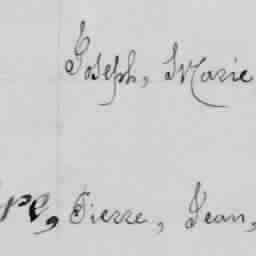 Joseph, Marie
re, Pierre, Jean,